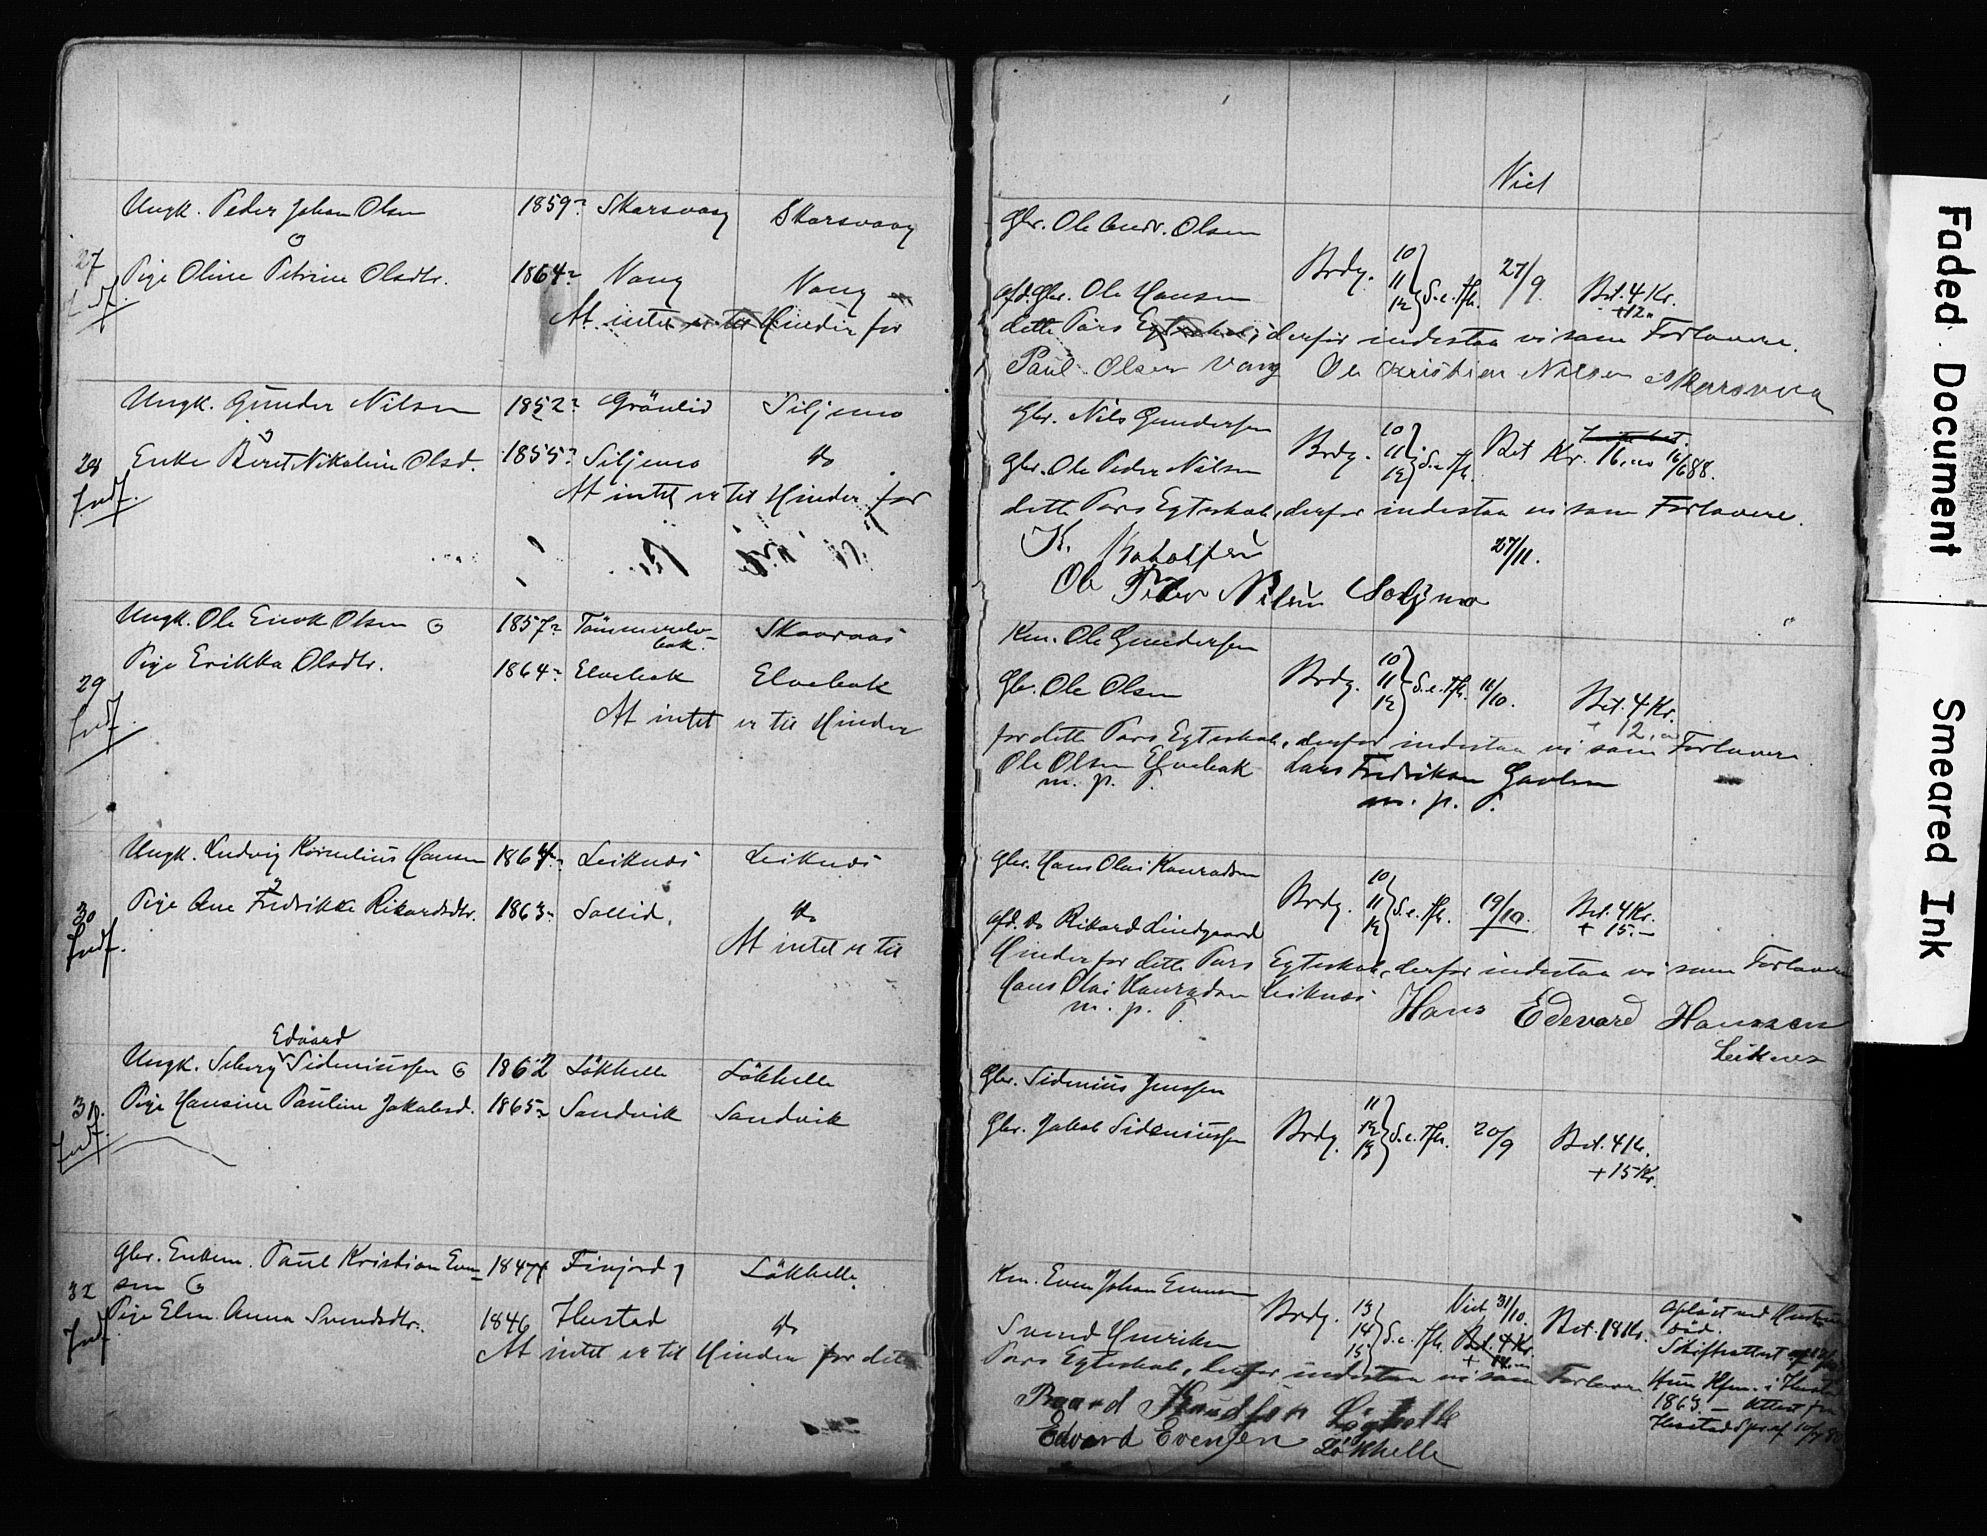 Viet
Ungk. Peder Johan Olsen 1859 Skarsvaag Skarsvaag Gbr. Ole Andr. Olsen
27 Pige Oline Petrine Olsdtr. 1864 Vang Vang afd. Gbr. Ole Hansen Brdg. 10 11 12 } S. e. Tfh. 27/9. Bet. 4 Kr. +12
Indf. At intet er til Hinder for dette Pars Egteskab, derfor indestaa vi som Forlovere.
Paul Olsen Vang Ole Kristian Nilsen Skarsvaa
Ungk. Gunder Nilsen 1852 Grönlid Siljemo Gbr. Nils Gundersen
28 Enke Beret Nikoline Olsd. 1855 Siljemo do Gbr. Ole Peder Nilsen Brdg. 10 11 12 } S. e. Tfh. Bet Kr. 16,00 16/6 88.
Indf. At intet er til Hinder for dette Pars Egteskab, derfor indestaa vi som Forlovere.
K. 27/11.
Ole Peder Nilsen
Ungk. Ole Erick Olsen 1857 Tömmerelvbak. Skaaraas Km. Ole Gundersen
29 Pige Erikka Olsdtr. 1864 Elvebak Elvebak Gbr. Ole Olsen Brdg. 10 11 12 } S. e. Tfh. 11/10. Bet. 4 Kr. + 12,
Indf. At intet er til Hinder for dette Pars Egteskab, derfor indestaa vi som Forlovere.
Ole Olsen Elvebak Lars Fredriksen
m. p. P. m. p. P.
Ungk. Ludvig Kornelius Hansen 1864 Leiknes Leiknes Gbr. Hans Olai Konradsen
30 Pige Ane Fredrikke Rikardsdtr. 1863 Sollid. do afd. do Rikard Lindgaard Brdg. 10 11 12 } S. e. Tfh. 19/10. Bet. 4 Kr. + 15.-
Indf. At intet er til Hinder for dette Pars Egteskab, derfor indestaa vi som Forlovere
Hans Olai Konradsen Leiknes Hans Edevard Hanssen
m. p. P. Leiknes
Edvard
Ungk. Sideniussen 1862 Lökhelle Lökhelle Gbr. Sidenius Jenssen
31. Pige Hansine Pauline Jakobsd. 1865 Sandvik Sandvik Gbr. Jakob Sideniussen Brdg. 11 12 13 } S. e. Tfh. 20/9 Bet. 4 Kr. +15 Kr.
Indf.
Gbr. Enkem. Paul Kristian Evensen 1847 Finjord Lökhelle Km. Even Johan Evensen
32 Pige Elen Anna Svendsdtr. 1846 Hustad do Svend Henriksen Brdg. 13 14 15 } S. e. Tfh. Viet 31/10. Bet. 4 Kr. Bet. 18 Kr.
Indf. At intet er til Hinder for dette Pars Egteskab, derfor indestaa vi som Forlovere
Baard Knudsen
Edvard Evensen Lökhelle
Aflöst ved Hustrus
Död.
Skifteattest af
Hun Kfm. i Hustad
1863. - Attest fra
Faded Document Smeared Ink